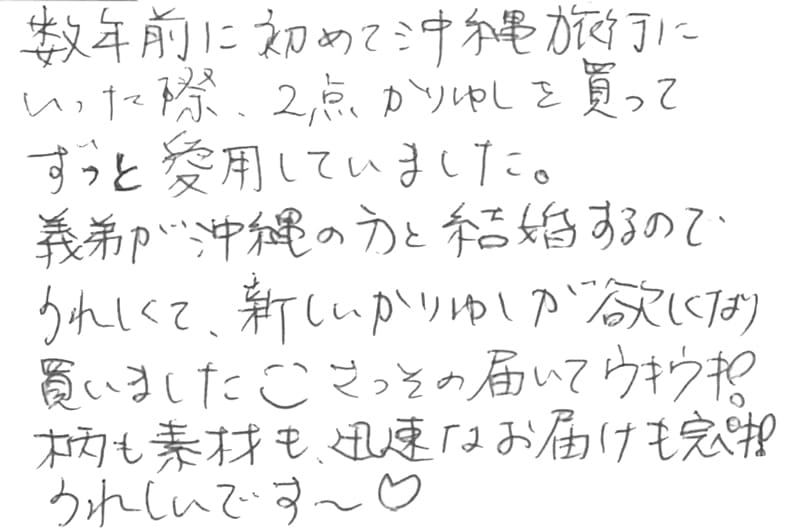 数年前に初めて沖縄旅行に
いった際、2点かりゆしを買って
ずっと愛用していました。
義弟が沖縄の方と結婚するので
うれしくて、新しいかりゆしが欲しくなり
買いました さっその届いてウキウキ!
柄も素材も、迅速なお届けも完ペキ!
うれしいです〜♡